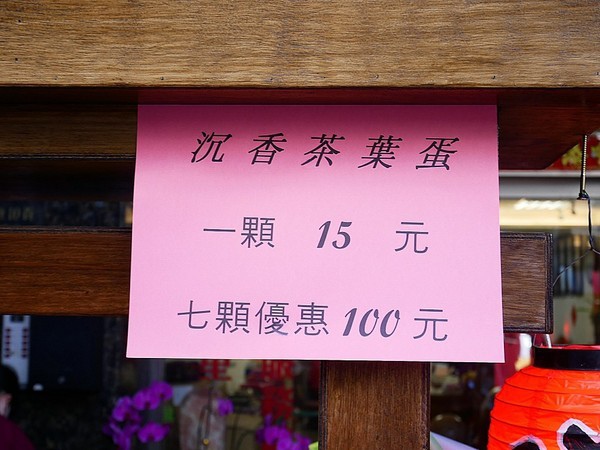 沉香茶葉蛋
一顆 15 元
七顆優惠 100 元